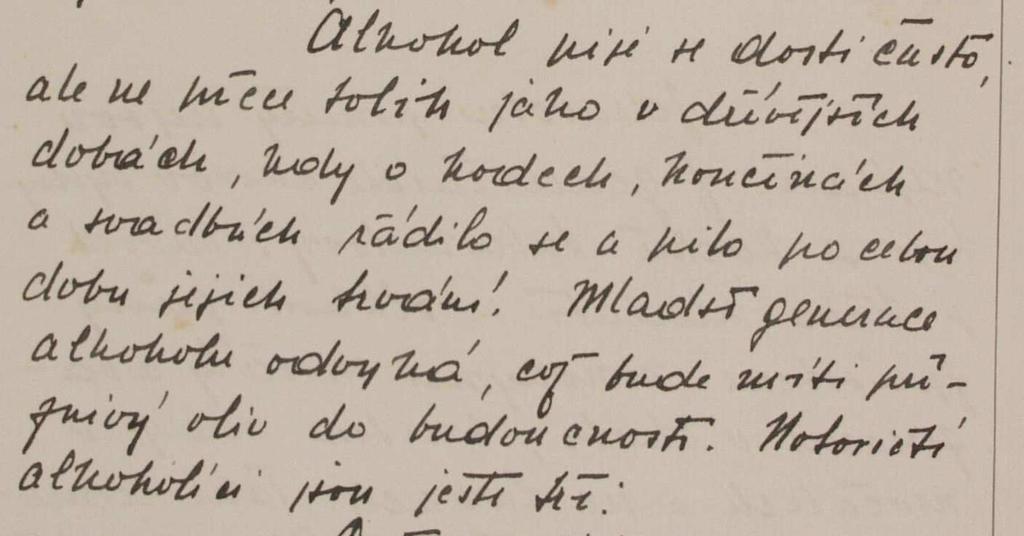 Alkohol pije se dosti často,
ale ne přece tolik jako v dřívějších
dobách, kdy o hodech, končinách
a svadbách řádilo se a pilo po celou
dobu jejich trvání. Mladší generace
alkoholu odvyká, což bude míti pří-
znivý vliv do budoucnosti. Notoričtí
alkoholici jsou ještě tři.